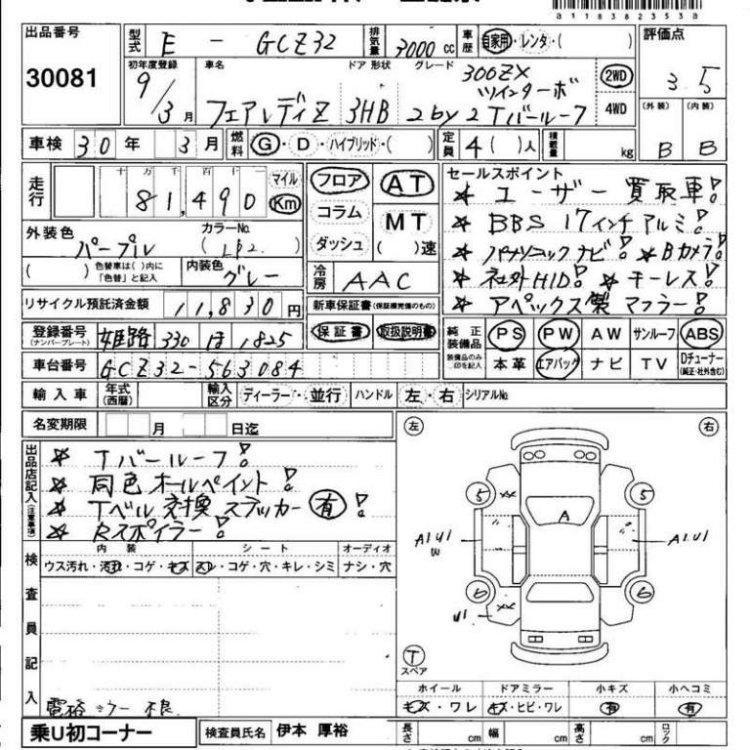 出品番号 30081
型式 E - GCZ32 排気量 3000 cc 車歴 自家用・レンタ・( )
評価点 3.5
(外装) (内装)
B B
初年度登録 車名 ドア 形状 グレード
9/3月 フェアレディZ 3HB 300ZX ツインターボ 2by2 Tバールーフ
2WD
4WD
車検 30年 3月 燃料 G・D・ハイブリッド・( ) 定員 4( )人 積載量 kg
走行 十 万 千 百 十 一
81,490 マイル Km
フロア コラム ダッシュ
AT MT ( )速
冷房 AAC
セールスポイント
☆ ユーザー買取車!
☆ BBS 17インチアルミ!
☆ パナソニックナビ! ☆Bカメラ!
☆ 社外HID! ☆キーレス!
☆ アペックス製マフラー!
外装色 パープル カラーNo. (LP2)
( ) 色替車は( )内に「色替」と記入 内装色 グレー
リサイクル預託済金額 11,830円
新車保証書(保証継続価のもの)
保証書 取扱説明書
登録番号 (ナンバープレート) 姫路 330 ほ 1825
車台番号 GCZ32-563084
純正装備品 装備品のみ○印を記入
PS PW AW サンルーフ ABS
本革 エアバッグ ナビ TV Dチューナー (純正・社外含む)
輸入車 年式(西暦) 輸入区分 ディーラー・並行 ハンドル 左・右 シリアルNo.
名変期限 月 日迄
出品店記入(注意事項)
☆ Tバールーフ!
☆ 同色オールペイント!
☆ Tベル交換ステッカー有!
☆ Rスポイラー!
検査員記入
内装 シート オーディオ
ウス汚れ・汚れ・コゲ・キズ スレ・コゲ・穴・キレ・シミ ナシ・穴
電格ミラー不良
左 右
5 ×× 5
A
A1U1 W A1U1
6 ×× 6
U1
T スペア
ホイール ドアミラー 小キズ 小ヘコミ
キズ・ワレ キズ・ヒビ・ワレ 有 有
乗U初コーナー 検査員氏名 伊本 厚裕 長さ cm 幅 cm 高さ cm ロック